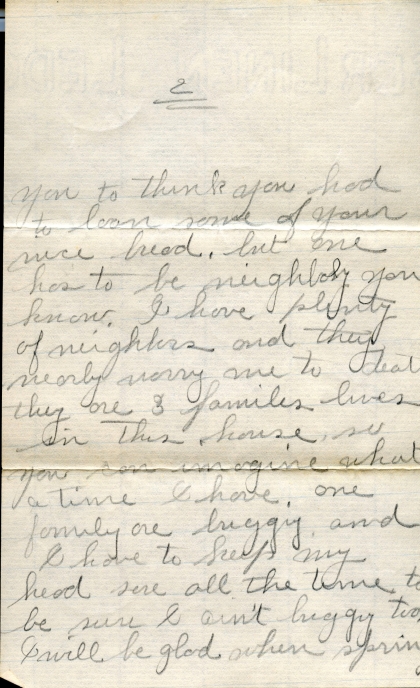 2
you to think you had
to loan some of your
nice bread, but one
has to be neighbly you
know. I have plenty
of neighbors and they
nearly worry me to deat
they are 3 families lives
in this house, so
you can imagine what
a time I have, one
family are buggy and
I have to keep my
head sore all the time to
be sure I ain't buggy too,
I will be glad when spring